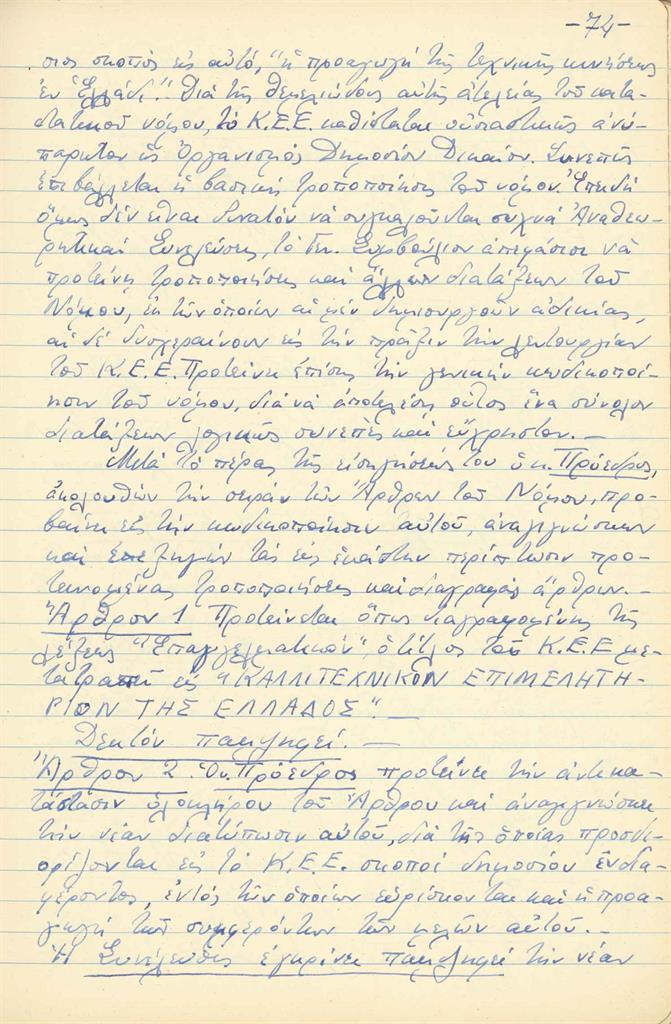 -74-
σιος σκοπὸς εἰς αὐτό, "ἡ προαγωγὴ τῆς τεχνικῆς κινήσεως
ἐν Ἑλλάδι". Διὰ τῆς θεμελιώδους αὐτῆς ἀτελείας τοῦ κατα-
στατικοῦ νόμου, τὸ Κ.Ε.Ε. καθίσταται οὐσιαστικῶς ἀνύ-
παρκτον ὡς Ὀργανισμὸς Δημοσίου Δικαίου. Συνεπῶς
ἐπιβάλλεται ἡ βασικὴ τροποποίησις τοῦ νόμου. Ἐπειδὴ
ὅμως δὲν εἶναι δυνατὸν νὰ συγκαλοῦνται συχνὰ Ἀναθεω-
ρητικαὶ Συνελεύσεις, τὸ Γεν. Συμβούλιον ἀπεφάσισε νὰ
προτείνῃ τροποποιήσεις καὶ ἄλλων διατάξεων τοῦ
Νόμου, ἐκ τῶν ὁποίων αἱ μὲν δημιουργοῦν ἀδικίας,
αἱ δὲ δυσχεραίνουν εἰς τὴν πρᾶξιν τὴν λειτουργίαν
τοῦ Κ.Ε.Ε. Προτείνει ἐπίσης τὴν γενικὴν κωδικοποί-
ησιν τοῦ νόμου, διὰ νὰ ἀποτελέσῃ οὗτος ἕνα σύνολον
διατάξεων λογικῶς συνεπὲς καὶ εὔχρηστον.—
Μετὰ τὸ πέρας τῆς εἰσηγήσεώς του ὁ κ. Πρόεδρος,
ἀκολουθῶν τὴν σειρὰν τῶν Ἄρθρων τοῦ Νόμου, προ-
βαίνει εἰς τὴν κωδικοποίησιν αὐτοῦ, ἀναγιγνώσκων
καὶ ἐπεξηγῶν τὰς εἰς ἑκάστην περίπτωσιν προ-
τεινομένας τροποποιήσεις καὶ διαγραφὰς ἄρθρων.—
Ἄρθρον 1 Προτείνεται ὅπως διαγραφομένης τῆς
λέξεως "Ἐπαγγελματικὸν", ὁ τίτλος τοῦ Κ.Ε.Ε με-
τατραπῇ εἰς "ΚΑΛΛΙΤΕΧΝΙΚΟΝ ΕΠΙΜΕΛΗΤΗ-
ΡΙΟΝ ΤΗΣ ΕΛΛΑΔΟΣ".—
Δεκτὸν παμψηφεί.—
Ἄρθρον 2. Ὁ κ. Πρόεδρος προτείνει τὴν ἀντικα-
τάστασιν ὁλοκλήρου τοῦ Ἄρθρου καὶ ἀναγιγνώσκει
τὴν νέαν διατύπωσιν αὐτοῦ, διὰ τῆς ὁποίας προσδι-
ορίζονται εἰς τὸ Κ.Ε.Ε. σκοποὶ δημοσίου ἐνδια-
φέροντος, ἐντὸς τῶν ὁποίων εὑρίσκονται καὶ ἡ προα-
γωγὴ τῶν συμφερόντων τῶν μελῶν αὐτοῦ.—
Ἡ Συνέλευσις ἐγκρίνει παμψηφεὶ τὴν νέαν